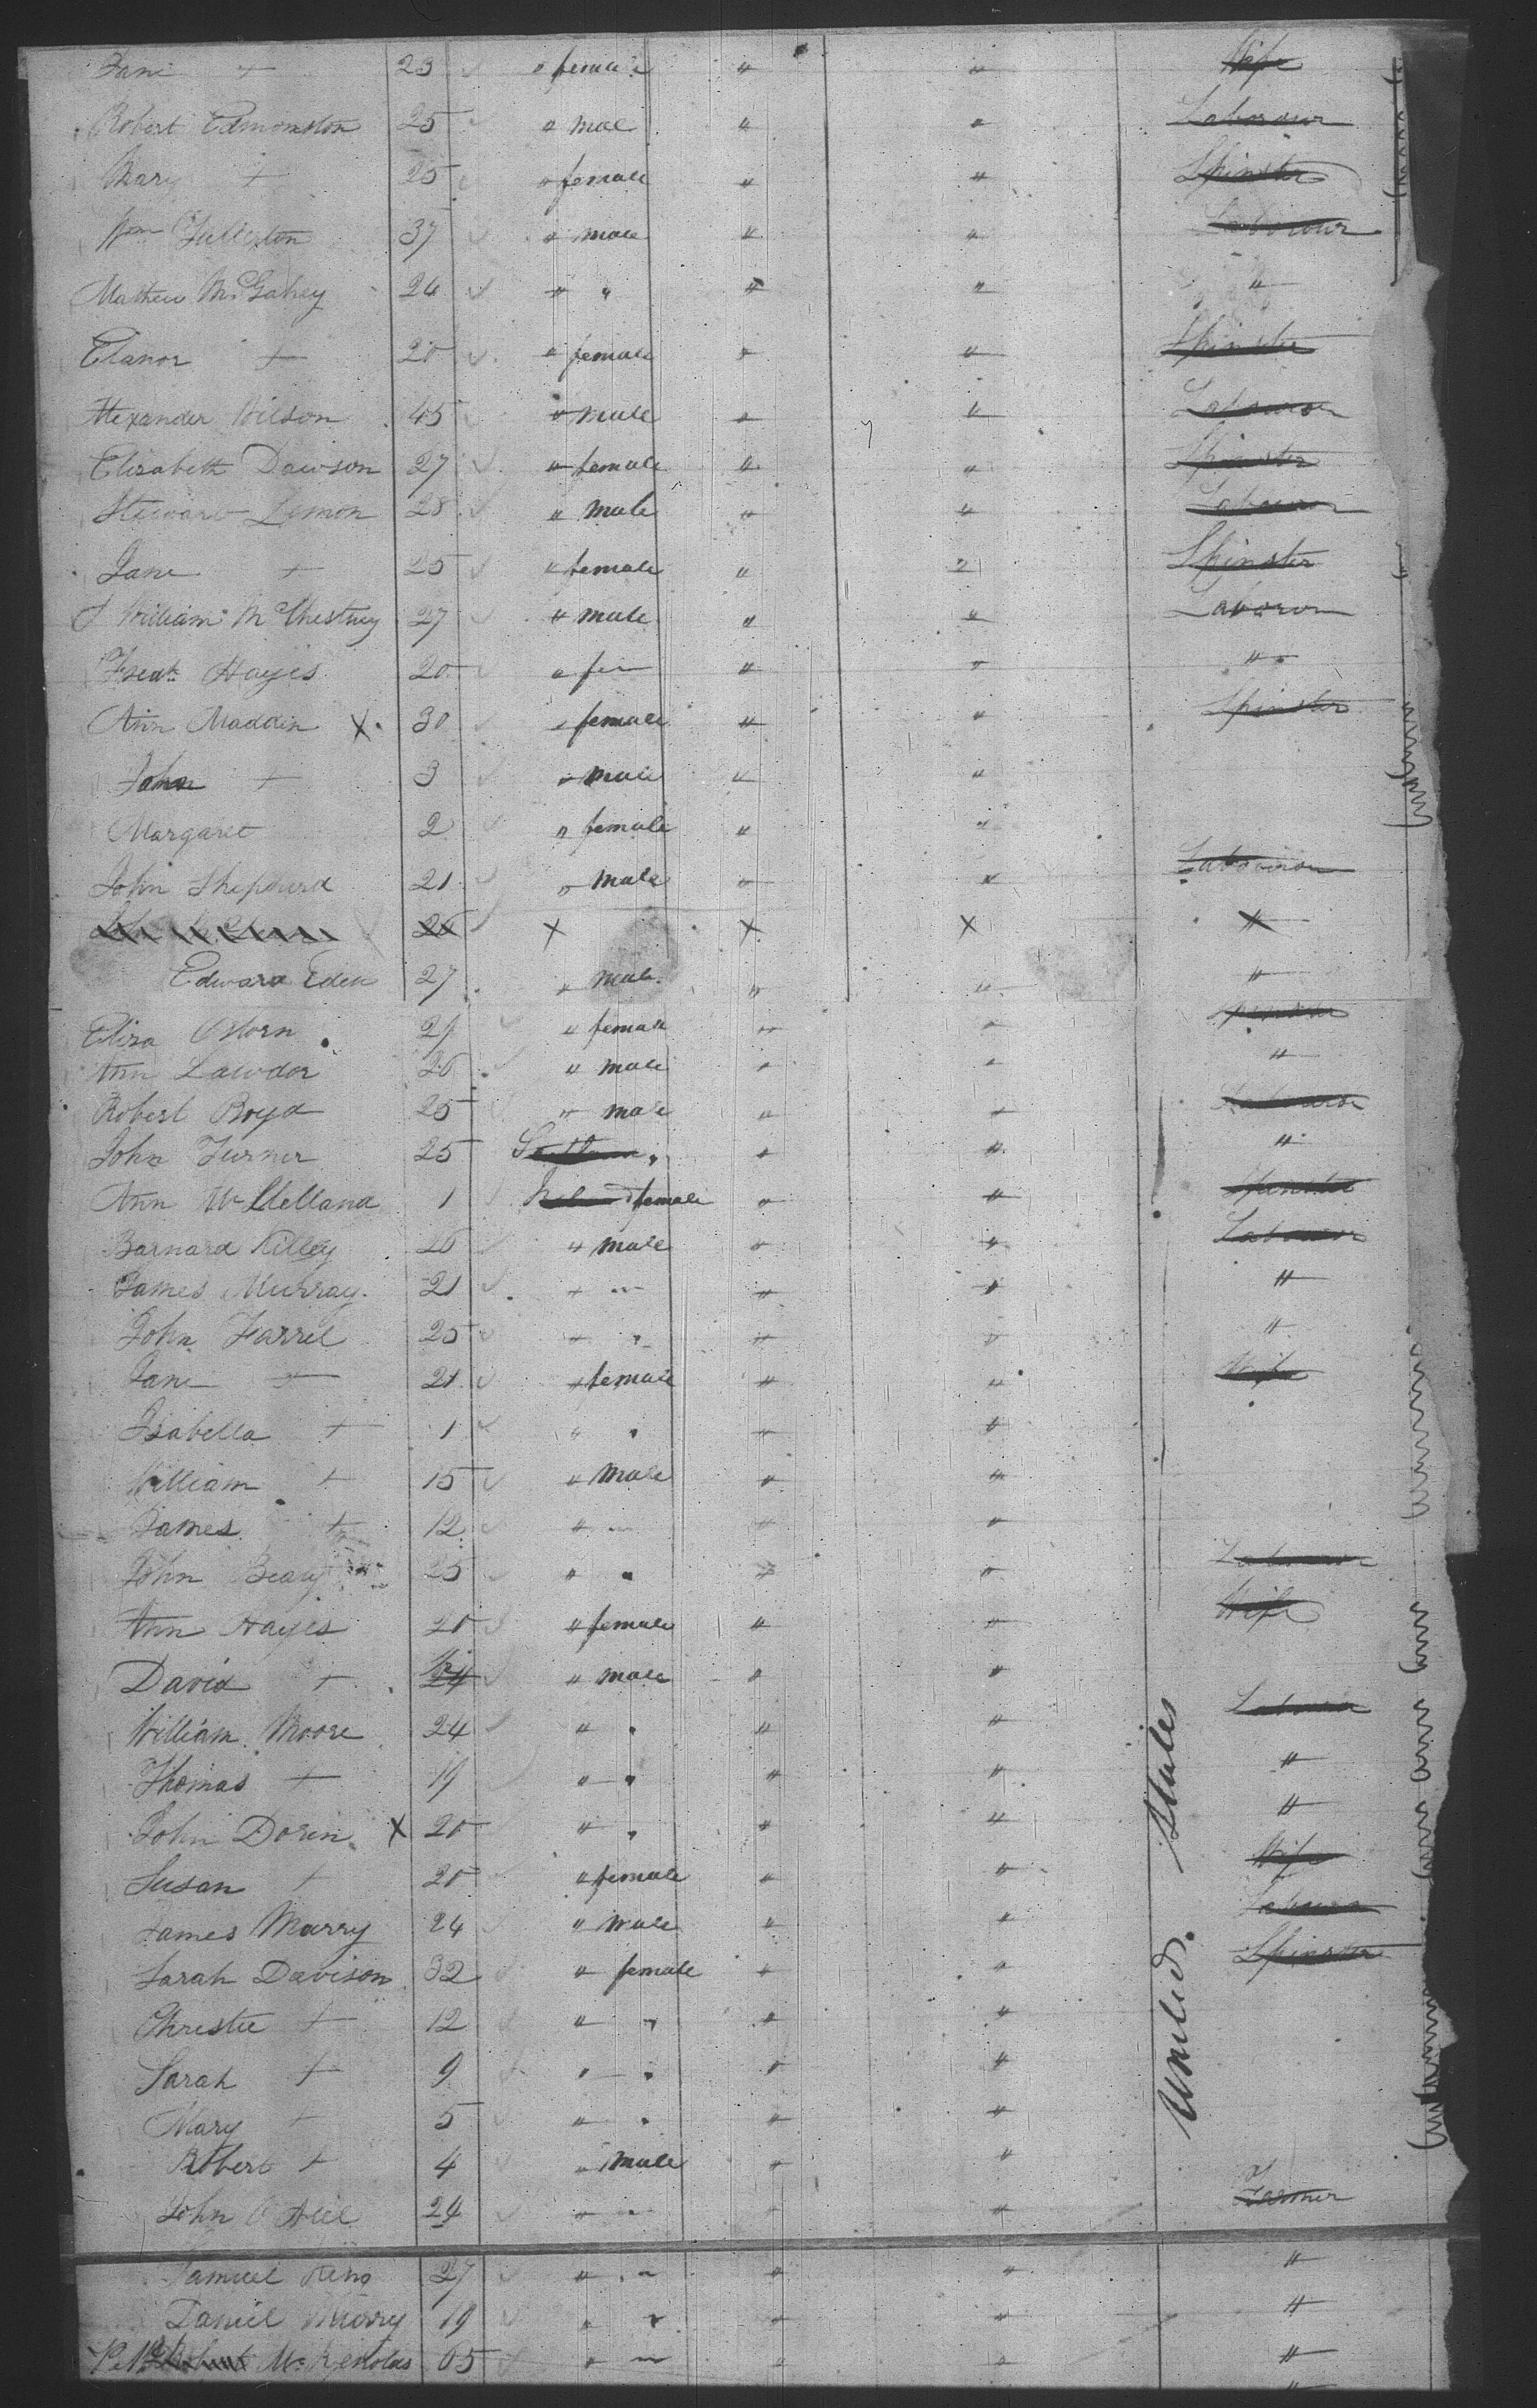 Jane + 23 " female " " Wife
Robert Edmonston 25 " male " " Labourer
Mary + 25 " female " " Spinster
Wm Fullerton 37 " male " " Labourer
Mathew McGahey 24 " " " " "
Elanor + 20 " female " " Spinster
Alexander Wilson 45 " male " " Labourer
Elizabeth Dawson 27 " female " " Spinster
Stewart Lemon 28 " male " " Labourer
Jane + 25 " female " " Spinster
William McChestney 27 " male " " Laborer
Hayes 20 " fem " " "
Ann Madden X 30 " female " " Spinster
John + 3 " male " "
Margaret 2 " female " "
John Shepherd 21 " male " " Labourer
26 X X X "
Edward Eden 27 " male " " "
Eliza Osborn 29 " female " " Spinster
Ann Lawdor 26 " male " " "
Robert Boyd 25 " male " " Labourer
John Turner 25 " " " "
Ann McClelland 1 Ireland female " " Spinster
Barnard Killey 26 " male " " Labourer
James Murray 21 " " " " "
John Farrel 25 " " " " "
Jane + 21 " female " " Wife
Isabella + 1 " " " "
William + 15 " male " "
James + 12 " " " "
John Beaty 25 " " " " Labourer
Ann Hayes 20 " female " " Wife
David + 24 " male " "
William Moore 24 " " " " Labourer
Thomas + 19 " " " " "
John Doren X 20 " " " " "
Susan + 20 " female " " Wife
James Marry 24 " male " " Labourer
Sarah Davison 32 " female " " Spinster
Christie + 12 " " " "
Sarah + 9 " " " "
Mary + 5 " " " "
Robert + 4 " male " "
John O'Niel 24 " " " " Farmer
Samuel 27 " " " " "
Daniel Murry 19 " " " " "
McReynolds 65 " " " " "
United States